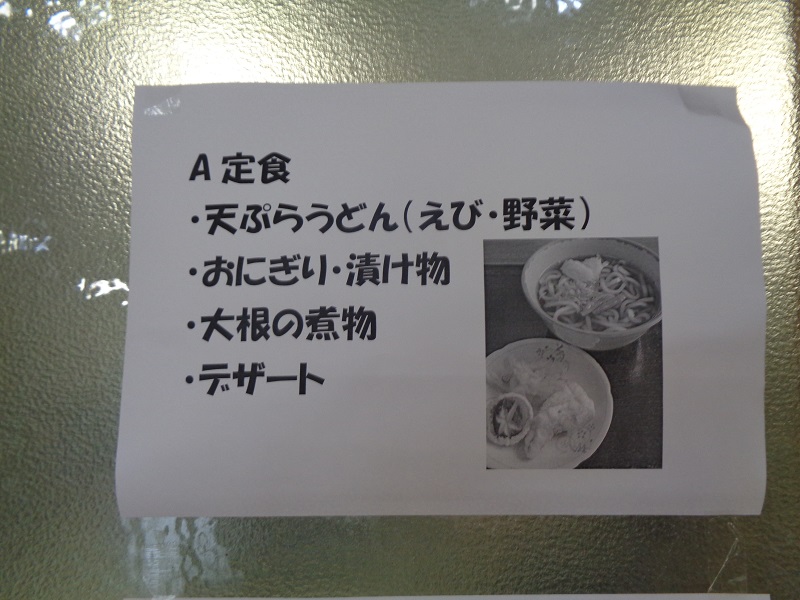 A定食
・天ぷらうどん(えび・野菜)
・おにぎり・漬け物
・大根の煮物
・デザート